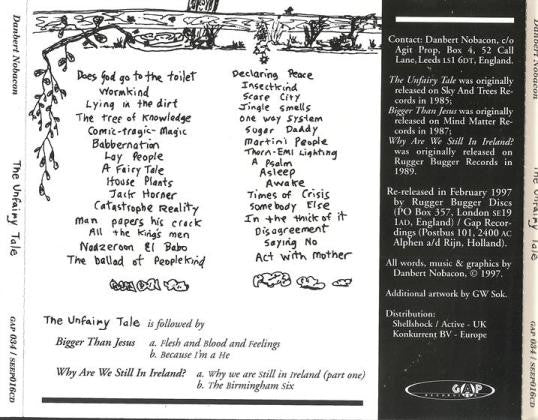 Danbert Nobacon
The Unfairy Tale
GAP 034 / SEEP016CD
Does god go to the toilet
Wormkind
Lying in the dirt
The tree of Knowledge
Comic-tragic-Magic
Babbernation
Lay People
A Fairy Tale
House Plants
Jack Horner
Catastrophe Reality
Man papers his crack
All the King's men
Nadzeroon El Babo
The ballad of Peoplekind
Declaring Peace
Insectkind
Scare City
Jingle smells
one way System
Sugar Daddy
Martini People
Thorn-EMI Lighting
A Psalm
Asleep
Awake
Times of Crisis
Somebody Else
In the thick of it
Disagreement
Saying No
Act with Mother
The Unfairy Tale is followed by
Bigger Than Jesus a. Flesh and Blood and Feelings
b. Because I'm a He
Why Are We Still In Ireland? a. Why we are Still in Ireland (part one)
b. The Birmingham Six
Contact: Danbert Nobacon, c/o
Agit Prop, Box 4, 52 Call
Lane, Leeds LS1 6DT, England.
The Unfairy Tale was originally
released on Sky And Trees Re-
cords in 1985;
Bigger Than Jesus was originally
released on Mind Matter Re-
cords in 1987;
Why Are We Still In Ireland?
was originally released on
Rugger Bugger Records in
1989.
Re-released in February 1997
by Rugger Bugger Discs
(PO Box 357, London SE19
1AD, England) / Gap Recor-
dings (Postbus 101, 2400 AC
Alphen a/d Rijn, Holland).
All words, music & graphics by
Danbert Nobacon, © 1997.
Additional artwork by GW Sok.
Distribution:
Shellshock / Active - UK
Konkurrent BV - Europe
GAP
RECORDINGS
Danbert Nobacon
The Unfairy Tale
GAP 034 / SEEP016CD